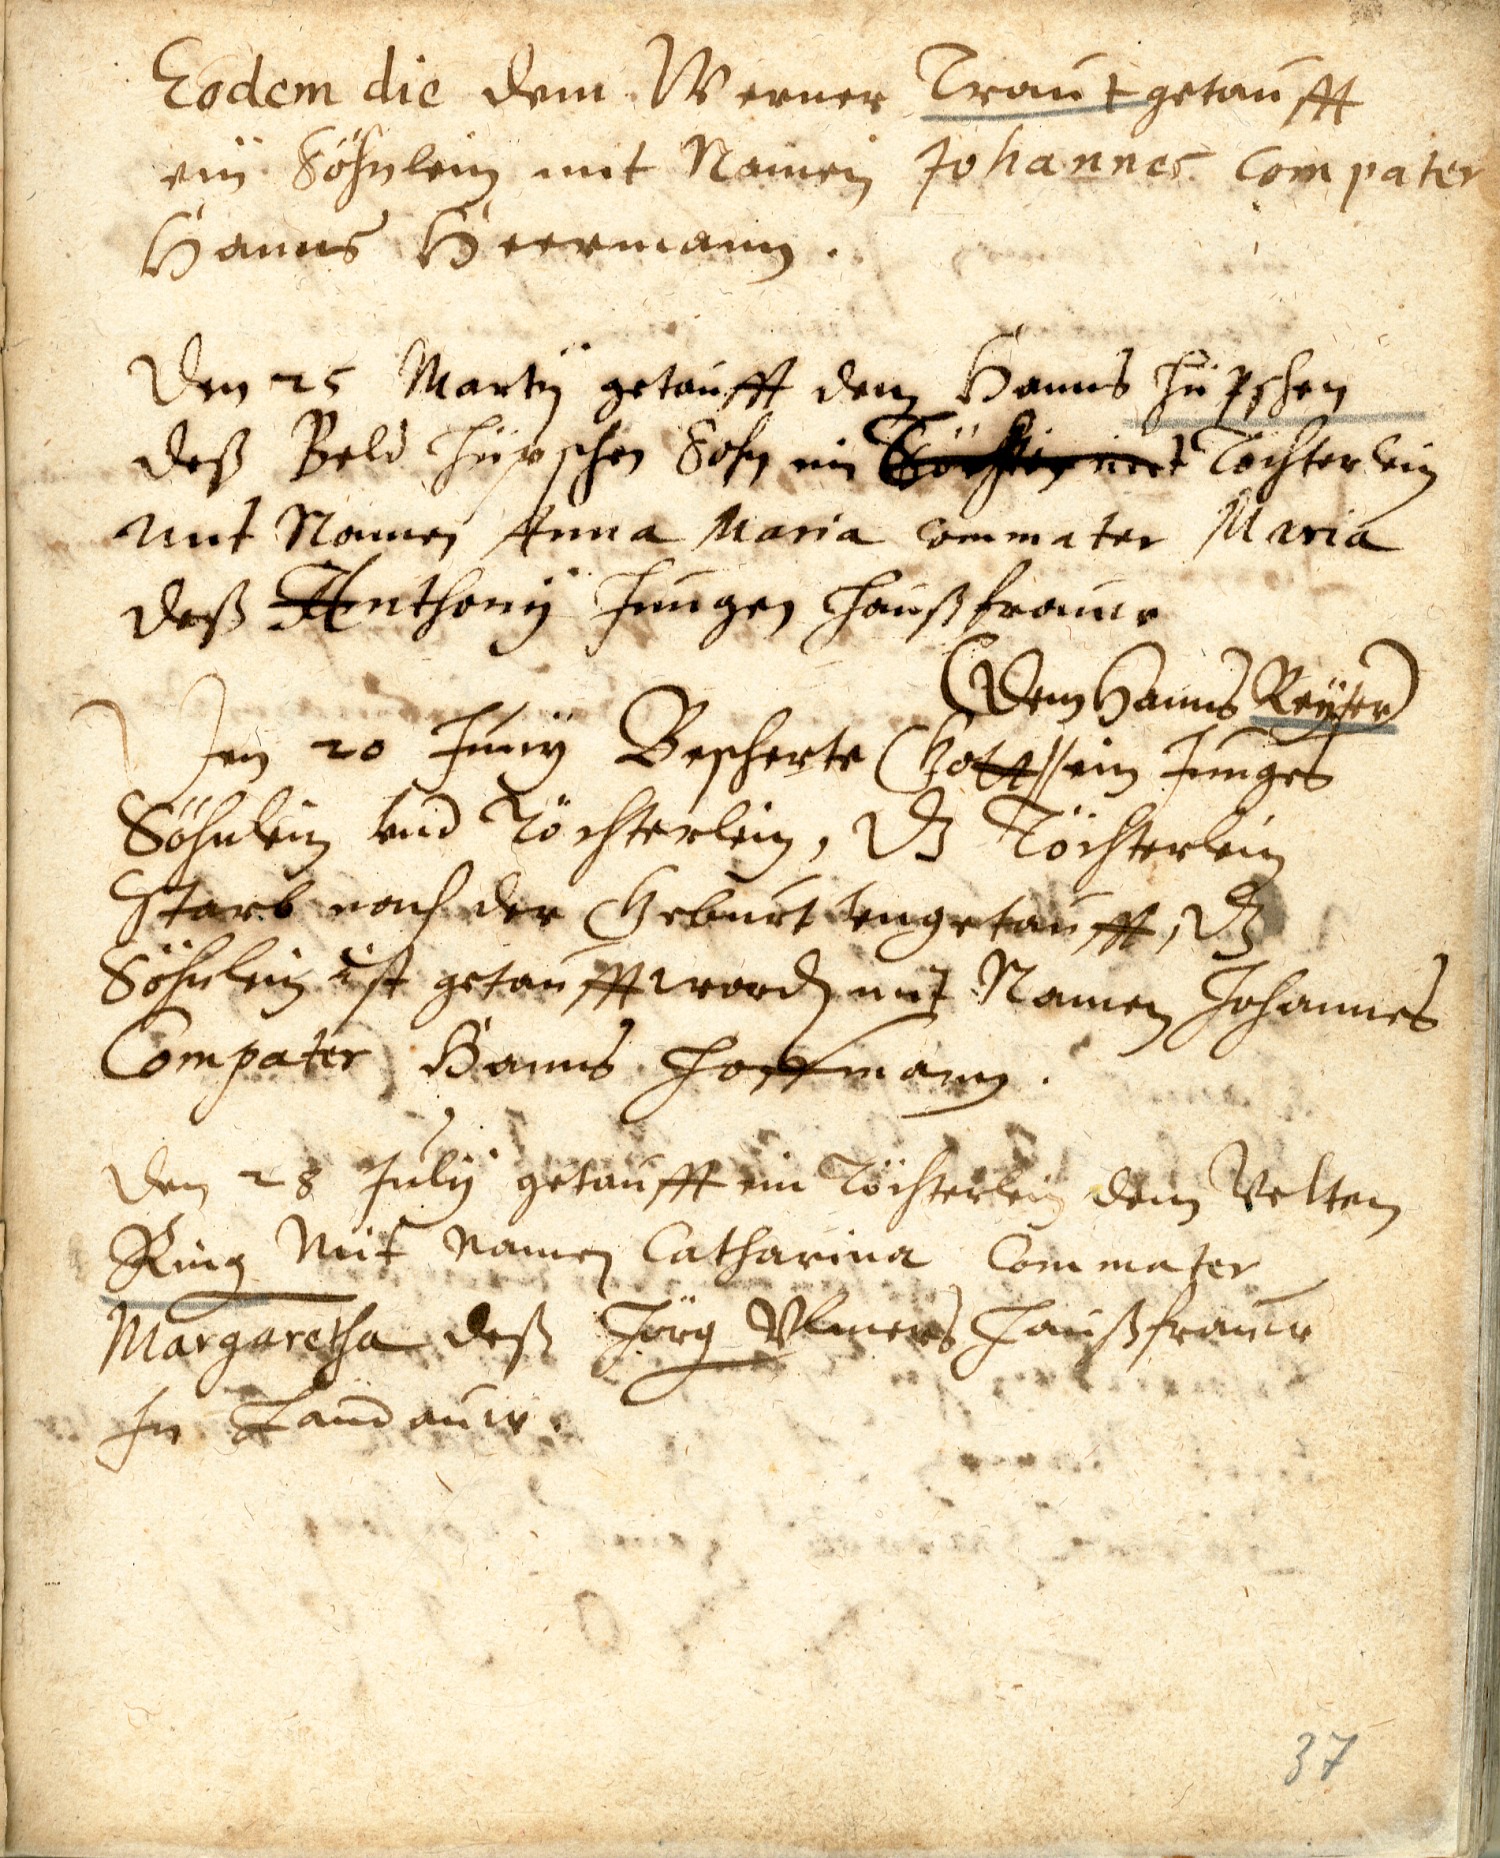 Eodem die dem Werner Traut getaufft
ein Söhnlein mit Namen Johannes Compater
Hanns Heermann.
Den 25 Martij getaufft dem Hanns Hüpschen
deß Beld Hüpschen Sohn ein Töchterlein
mit Namen Anna Maria Commater Maria
deß Anthonij Jungen Haußfrauw
(Dem Hanns Reyser)
Den 20 Junij Bescherte Gott // ein Junges
Söhnlein vnd Töchterlein, dz Töchterlein
starb nach der Geburt vngetaufft, dz
Söhnlein ist getaufft word mit Namen Johannes
Compater Hanns Hoffmann.
Den 28 Julij getaufft ein Töchterlein dem Velten
Ring Mit namen Catharina Commater
Margaretha deß Jörg Vlmers Haußfrauw
In Landauw.
37